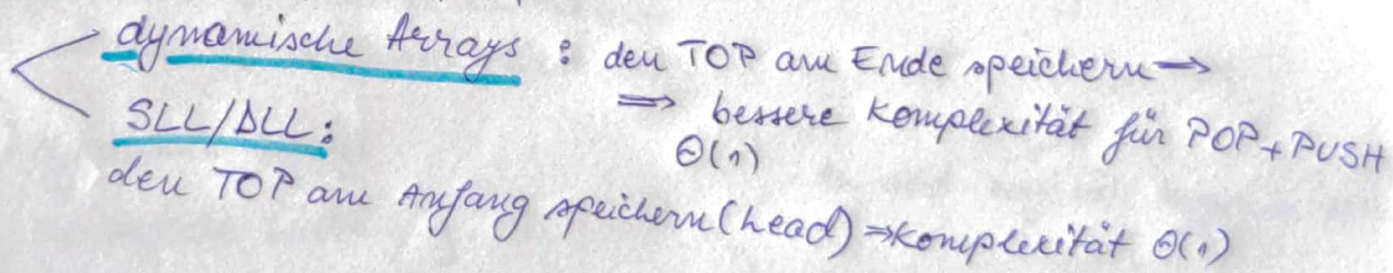 dynamische Arrays : den TOP am Ende speichern →
⇒ bessere Komplexität für POP + PUSH
Θ(1)
SLL/DLL:
den TOP am Anfang speichern (head) ⇒ Komplexität Θ(1)